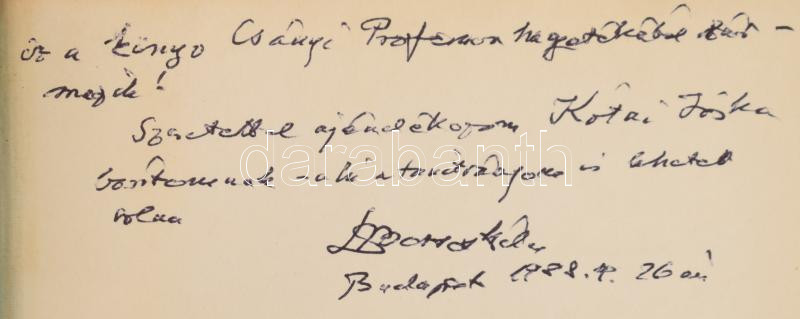 ez a könyv Csányi Professor hagyatékából szár-
mazik!
Szeretettel ajándékozom Kótai Jóska
barátomnak - aki a tanítványom is lehetett
volna
Budapest 1988. 26 án
darabanth